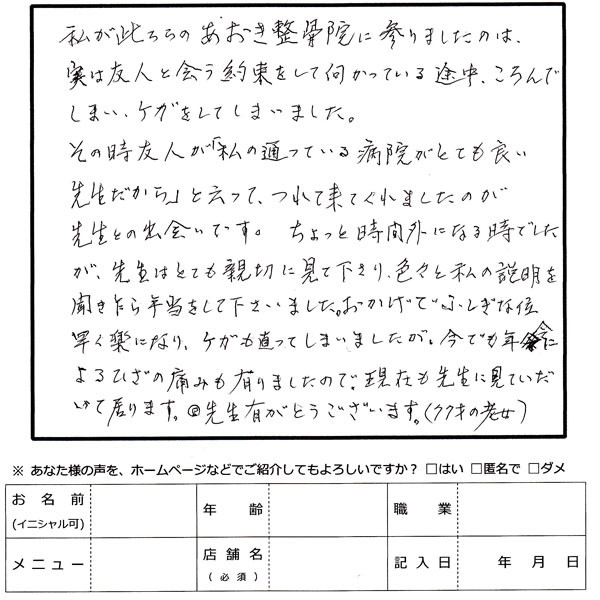 私が此ちらのあおき整骨院に参りましたのは、
実は友人と会う約束をして何かっている途中、ころんで
しまい、ケガをしてしまいました。
その時友人が「私の通っている病院がとても良い
先生だから」と云って、つれて来てくれましたのが
先生との出会いです。ちょっと時間外になる時でした
が、先生はとても親切に見て下さり、色々と私の説明を
聞き乍ら手当をして下さいました。おかげでふしぎな位
早く楽になり、ケガも直ってしまいましたが。今でも年令に
よるひざの痛みも有りましたので、現在も先生に見ていただ
いて居ります。先生有がとうございます。(クワキの老女)
※ あなた様の声を、ホームページなどでご紹介してもよろしいですか? □はい □匿名で □ダメ
お名前 年齢 職業
(イニシャル可)
メニュー 店舗名 記入日 年 月 日
(必須)